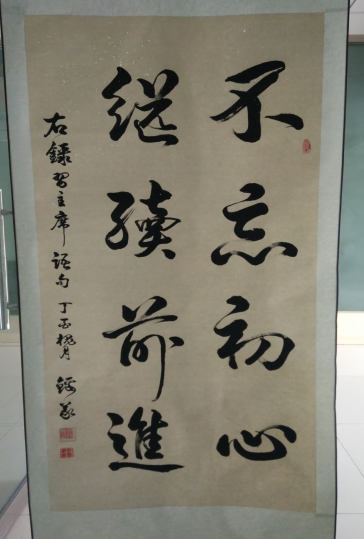 不忘初心
继續前進
右録習主席語句丁酉桃月